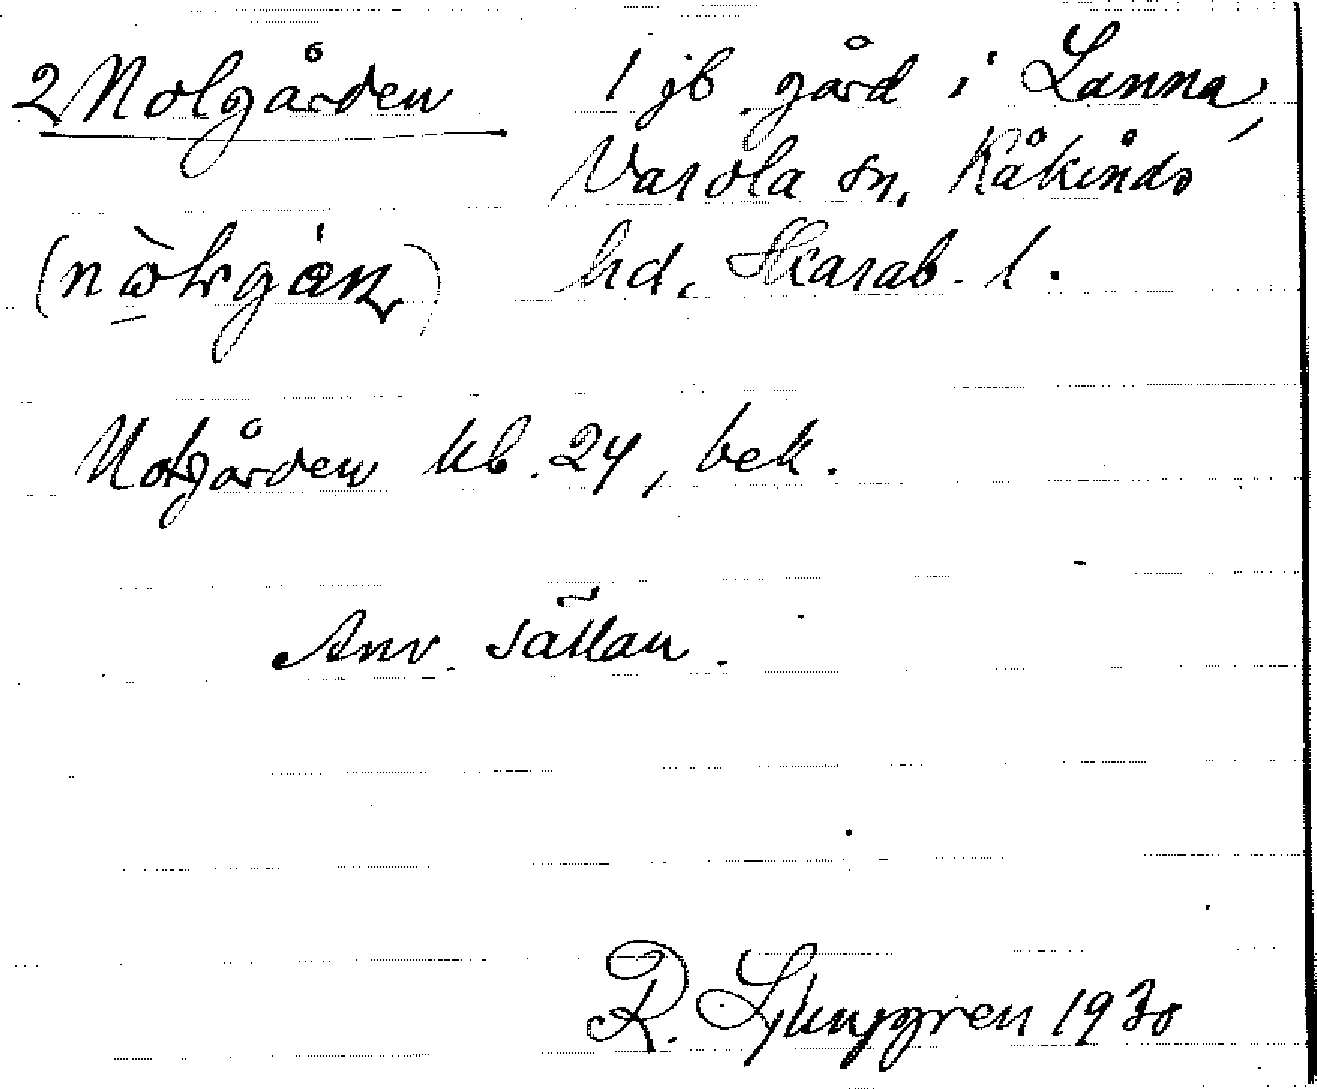 2 Nolgården 1 jb. gård i Lanna,
Varola sn, Kåkinds
hd, Skarab. l.
Nolgården kb. 24, bek.
Anv. sällan.
R. Ljunggren 1930